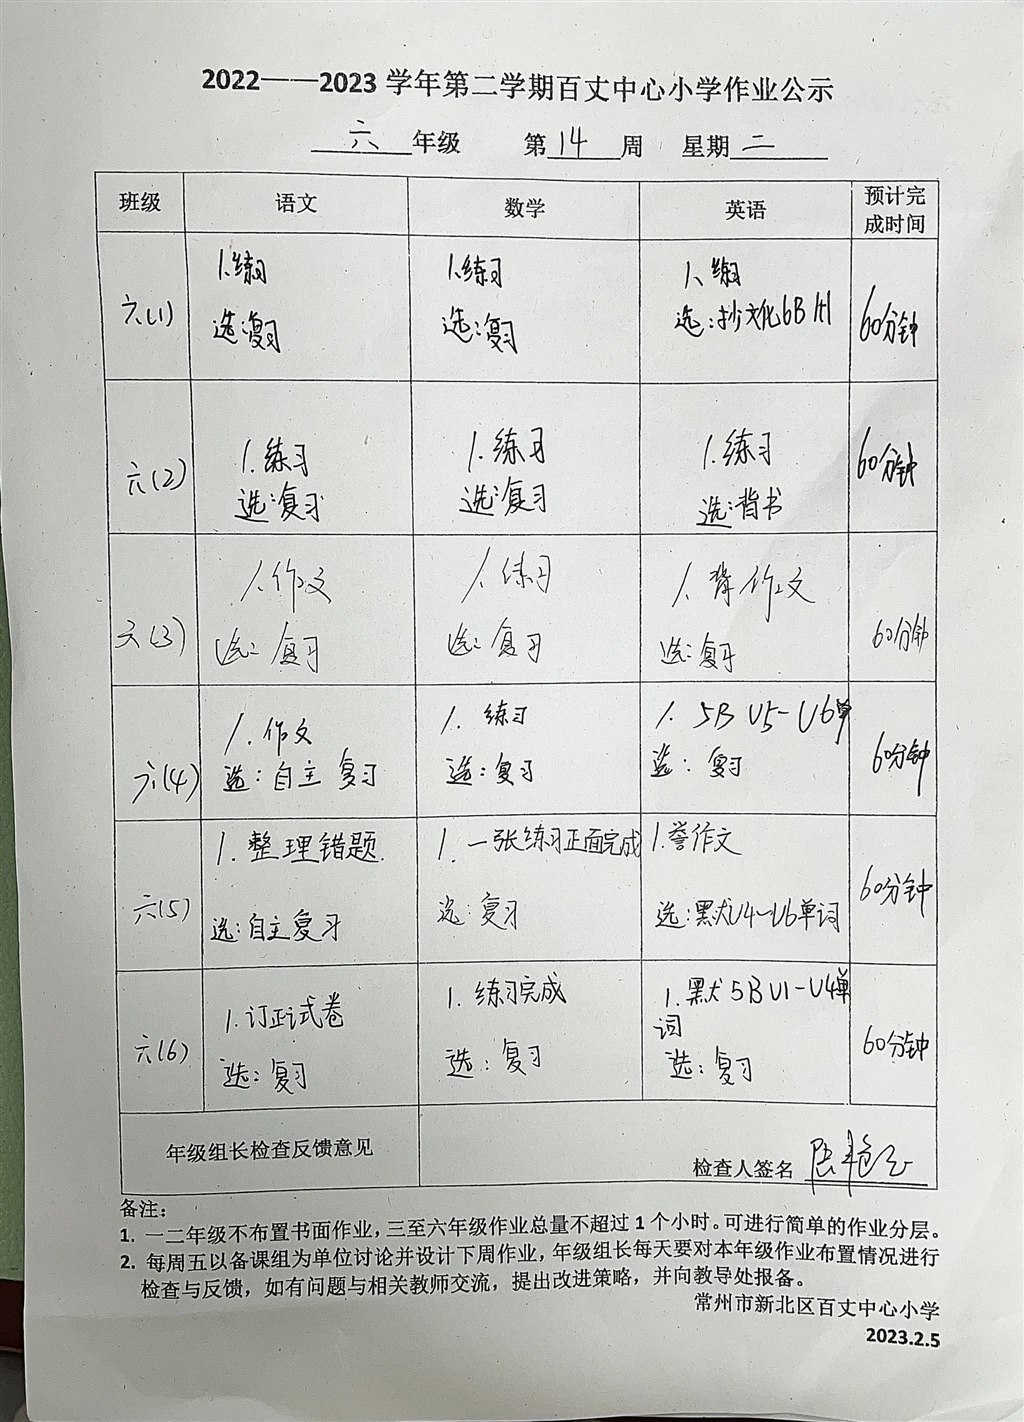 2022——2023 学年第二学期百丈中心小学作业公示
六 年级 第 14 周 星期 二
班级 语文 数学 英语 预计完成时间
六(1)
1.练习
选:复习
1.练习
选:复习
1.练习
选:抄文化6B
60分钟
六(2)
1.练习
选:复习
1.练习
选:复习
1.练习
选:背书
60分钟
六(3)
1.作文
选:复习
1.练习
选:复习
1.背作文
选:复习
60分钟
六(4)
1.作文
选:自主复习
1.练习
选:复习
1. 5B U5-U6单
选:复习
60分钟
六(5)
1.整理错题.
选:自主复习
1.一张练习正面完成
选:复习
1.誉作文
选:默U4-U6单词
60分钟
六(6)
1.订正试卷
选:复习
1.练习完成
选:复习
1.默5B U1-U4单
词
选:复习
60分钟
年级组长检查反馈意见
检查人签名
备注:
1. 一二年级不布置书面作业,三至六年级作业总量不超过 1 个小时。可进行简单的作业分层。
2. 每周五以备课组为单位讨论并设计下周作业,年级组长每天要对本年级作业布置情况进行
检查与反馈,如有问题与相关教师交流,提出改进策略,并向教导处报备。
常州市新北区百丈中心小学
2023.2.5